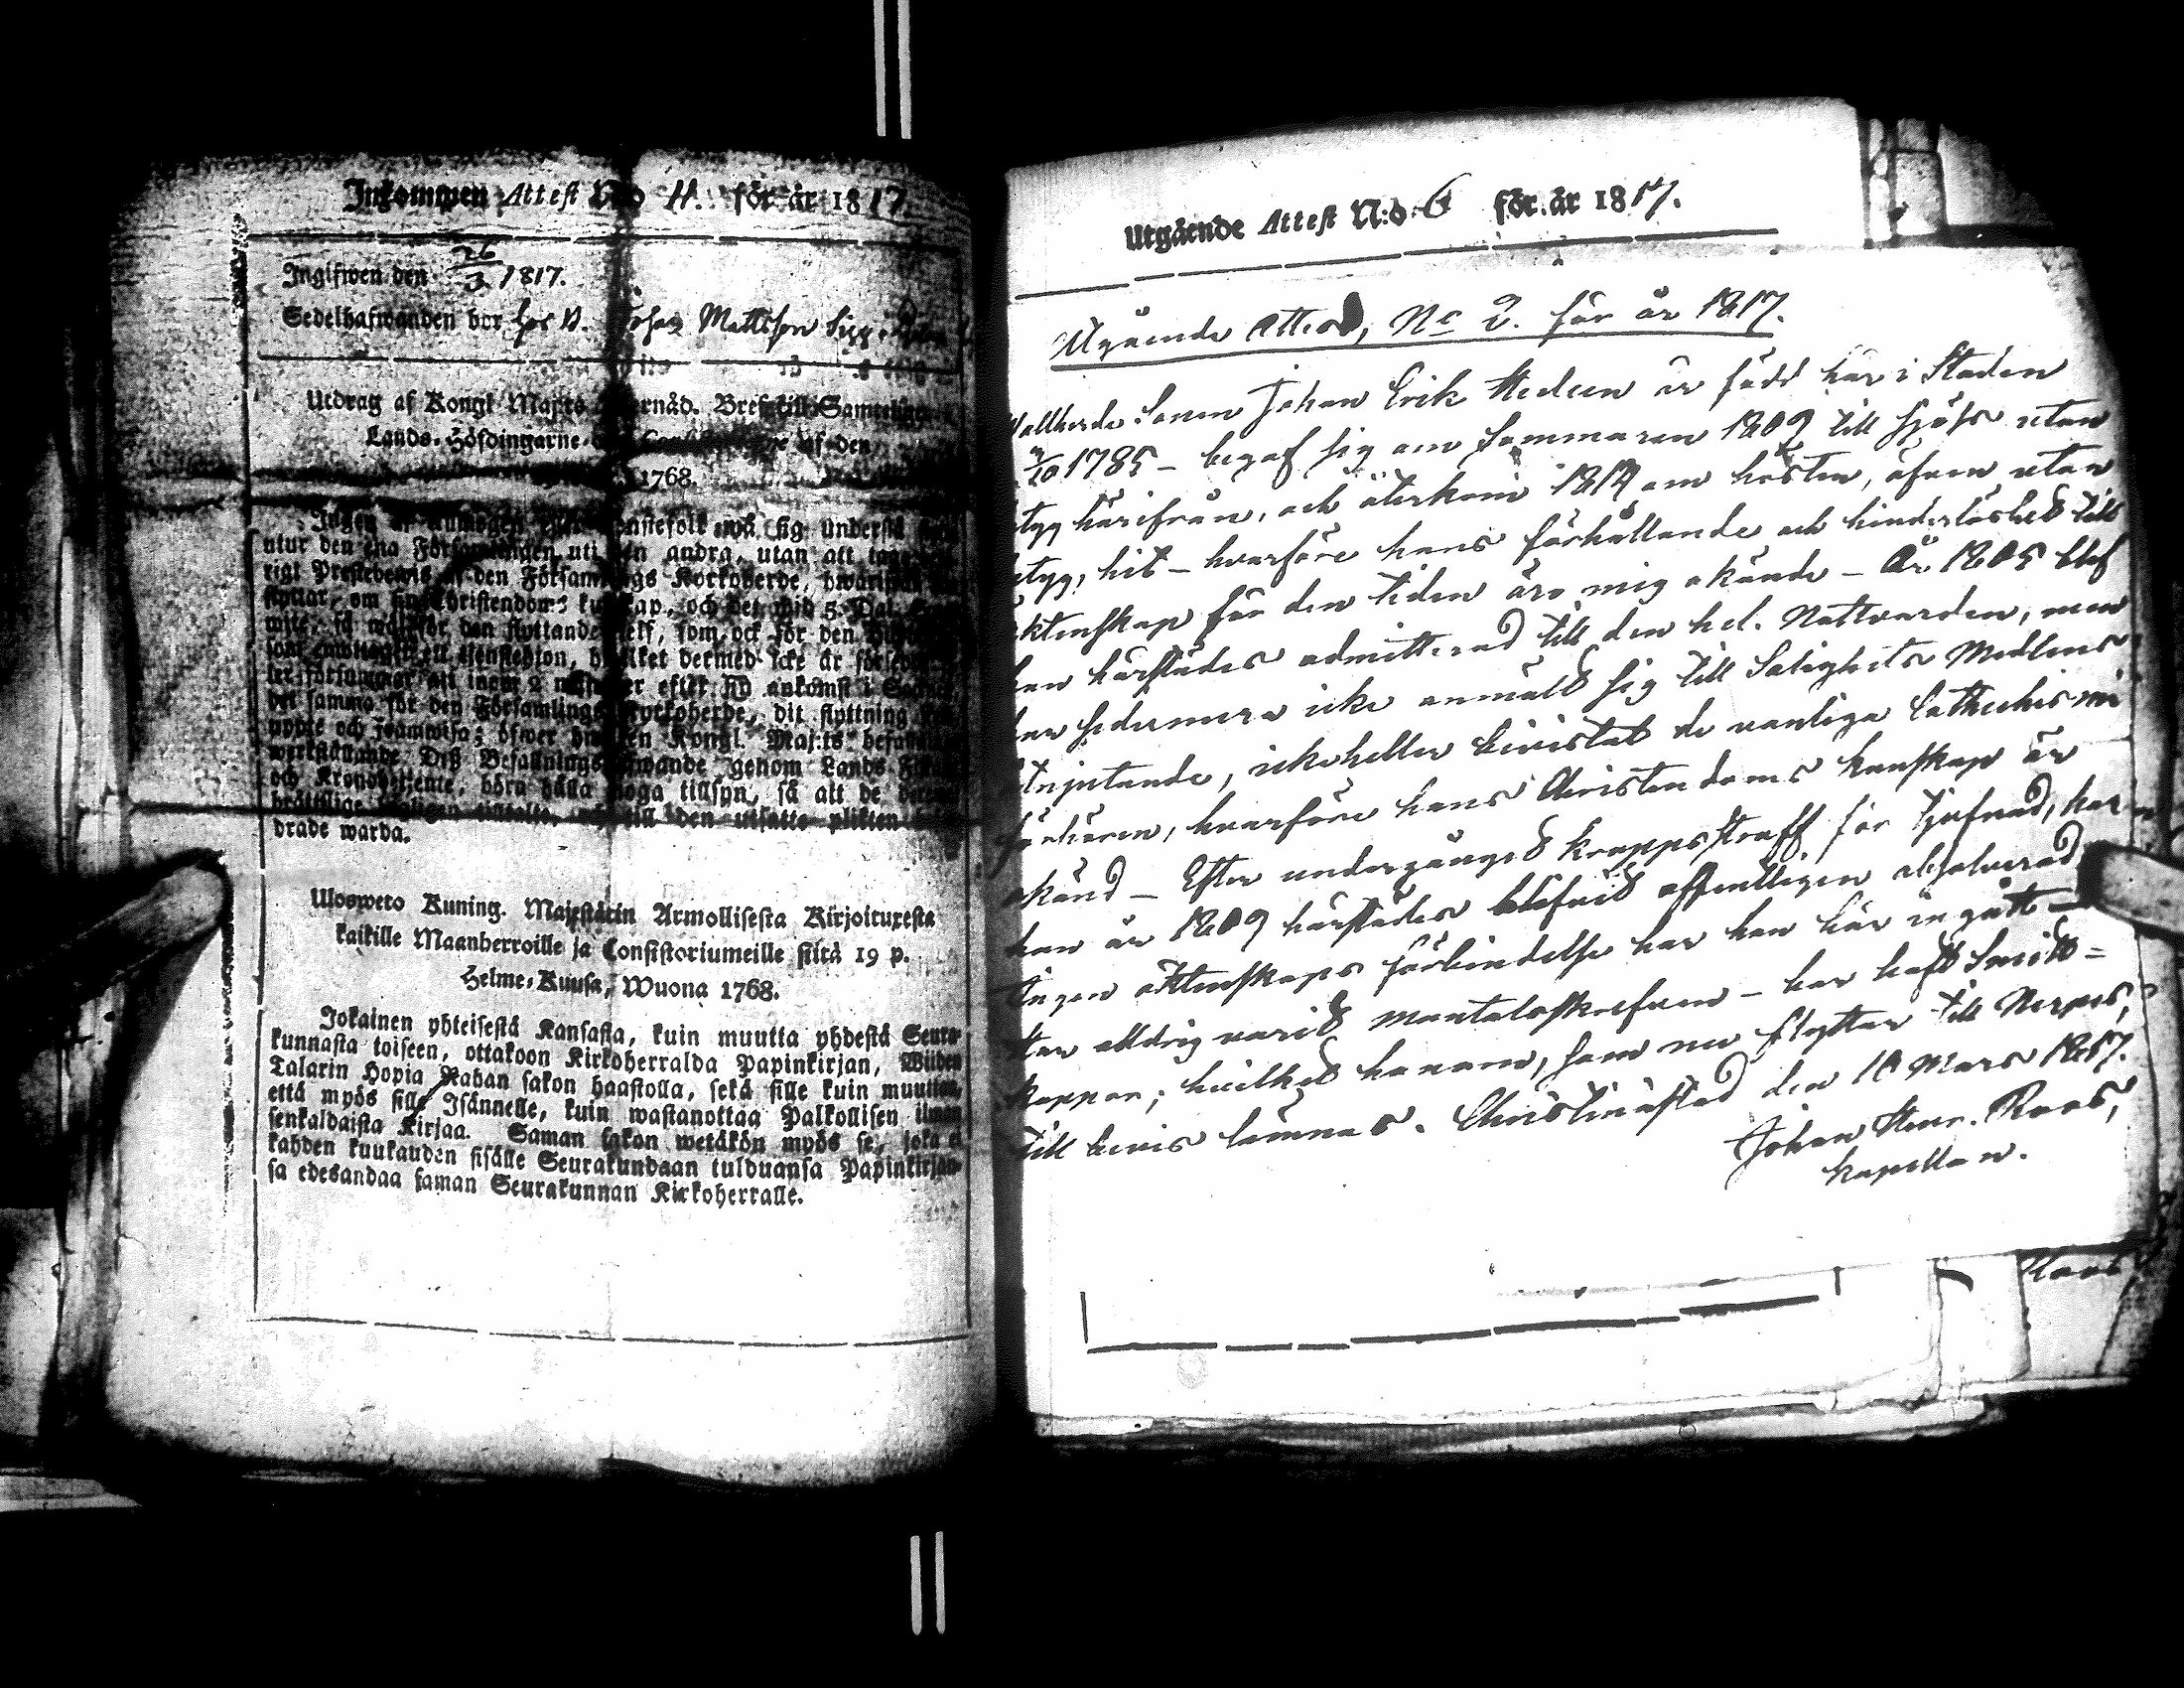 Inkommen Attest N:o 11. för år 1817.
Ingifwen den 26/3 1817.
Sedelhafwanden bor hos
Utdrag af Kongl. Maj:ts Bref till Samtelige
Lands-Höfdingarne af den
1768.
Ingen af må sig understå
utur den ena Församlingen uti den andra, utan att taga
rigt Prestebewis af den Församlings Kyrkoherde, hwarifrån
flyttar, om sin Christendoms kunskap, och det wid 5 Dal.
wite, så wäl för den flyttande sielf, som ock för den
som emottager ett tjenstehjon, hwilket dermed icke är försedt
ler försummar att inom 2 månader efter sin ankomst i
det samma för den Församlings Kyrkoherde, dit flyttning
uppte och framwisa; öfwer hwilken Kongl. Maj:ts befallning
werkställande Deß Befallningshafwande genom Lands
och Kronobetjente, böra hålla noga tillsyn, så att de
till den utsatte plikten
drade warda.
Ulosweto Kuning. Majestätin Armollisesta Kirjoituxesta
kaikille Maanherroille ja Consistoriumeille siitä 19 p.
Helme-Kuusa, Wuona 1768.
Jokainen yhteisestä Kansasta, kuin muutta yhdestä Seura-
kunnasta toiseen, ottakoon Kirkoherralda Papinkirjan, Wiiden
Talarin Hopia Rahan sakon haastolla, sekä sille kuin muuttaa,
että myös sille Isännelle, kuin wastanottaa Palkollisen ilman
senkaldaista Kirjaa. Saman sakon wetäkön myös se, joka ei
kahden kuukauden sisälle Seurakundaan tulduansa Papinkirjan-
sa edesandaa saman Seurakunnan Kirkoherralle.
Utgående Attest N:o 6 för år 1817.
Utgående Attest, No 2. för år 1817.
Vallherde Sonen Johan Erik Hedeen är född här i Staden
/10 1785 - begaf sig om Sommaren 1809 till sjöfs utan
tyg härifrån, och återkom 1814 om hösten, äfven utan
tyg, hit - hvarföre hans förhållande och hinderlöshet till
äktenskap för den tiden äro mig okände - År 1805 blef
han härstädes admitterad till den hel. Nattvarden, men
har sedermera icke anmält sig till Salighets Medlens
åtnjutande, icke heller bivistat de vanliga Cathechismi
förhören, hvarföre hans Christendoms kunskap är
okänd - Efter undergånget kroppsstraff för tjufnad, har
han år 1809 härstädes blifvit offentligen absolverad
Ingen äktenskaps förbindelse har han här ingått -
Har alldrig varit mantalsskrefven - har haft Smitt=
koppor; hvilket honom, som nu flyttar till Nerpes,
till bevis lämnas. Christinæstad den 10 Mars 1817.
Johan Henr. Roos,
kapellan.
Roos